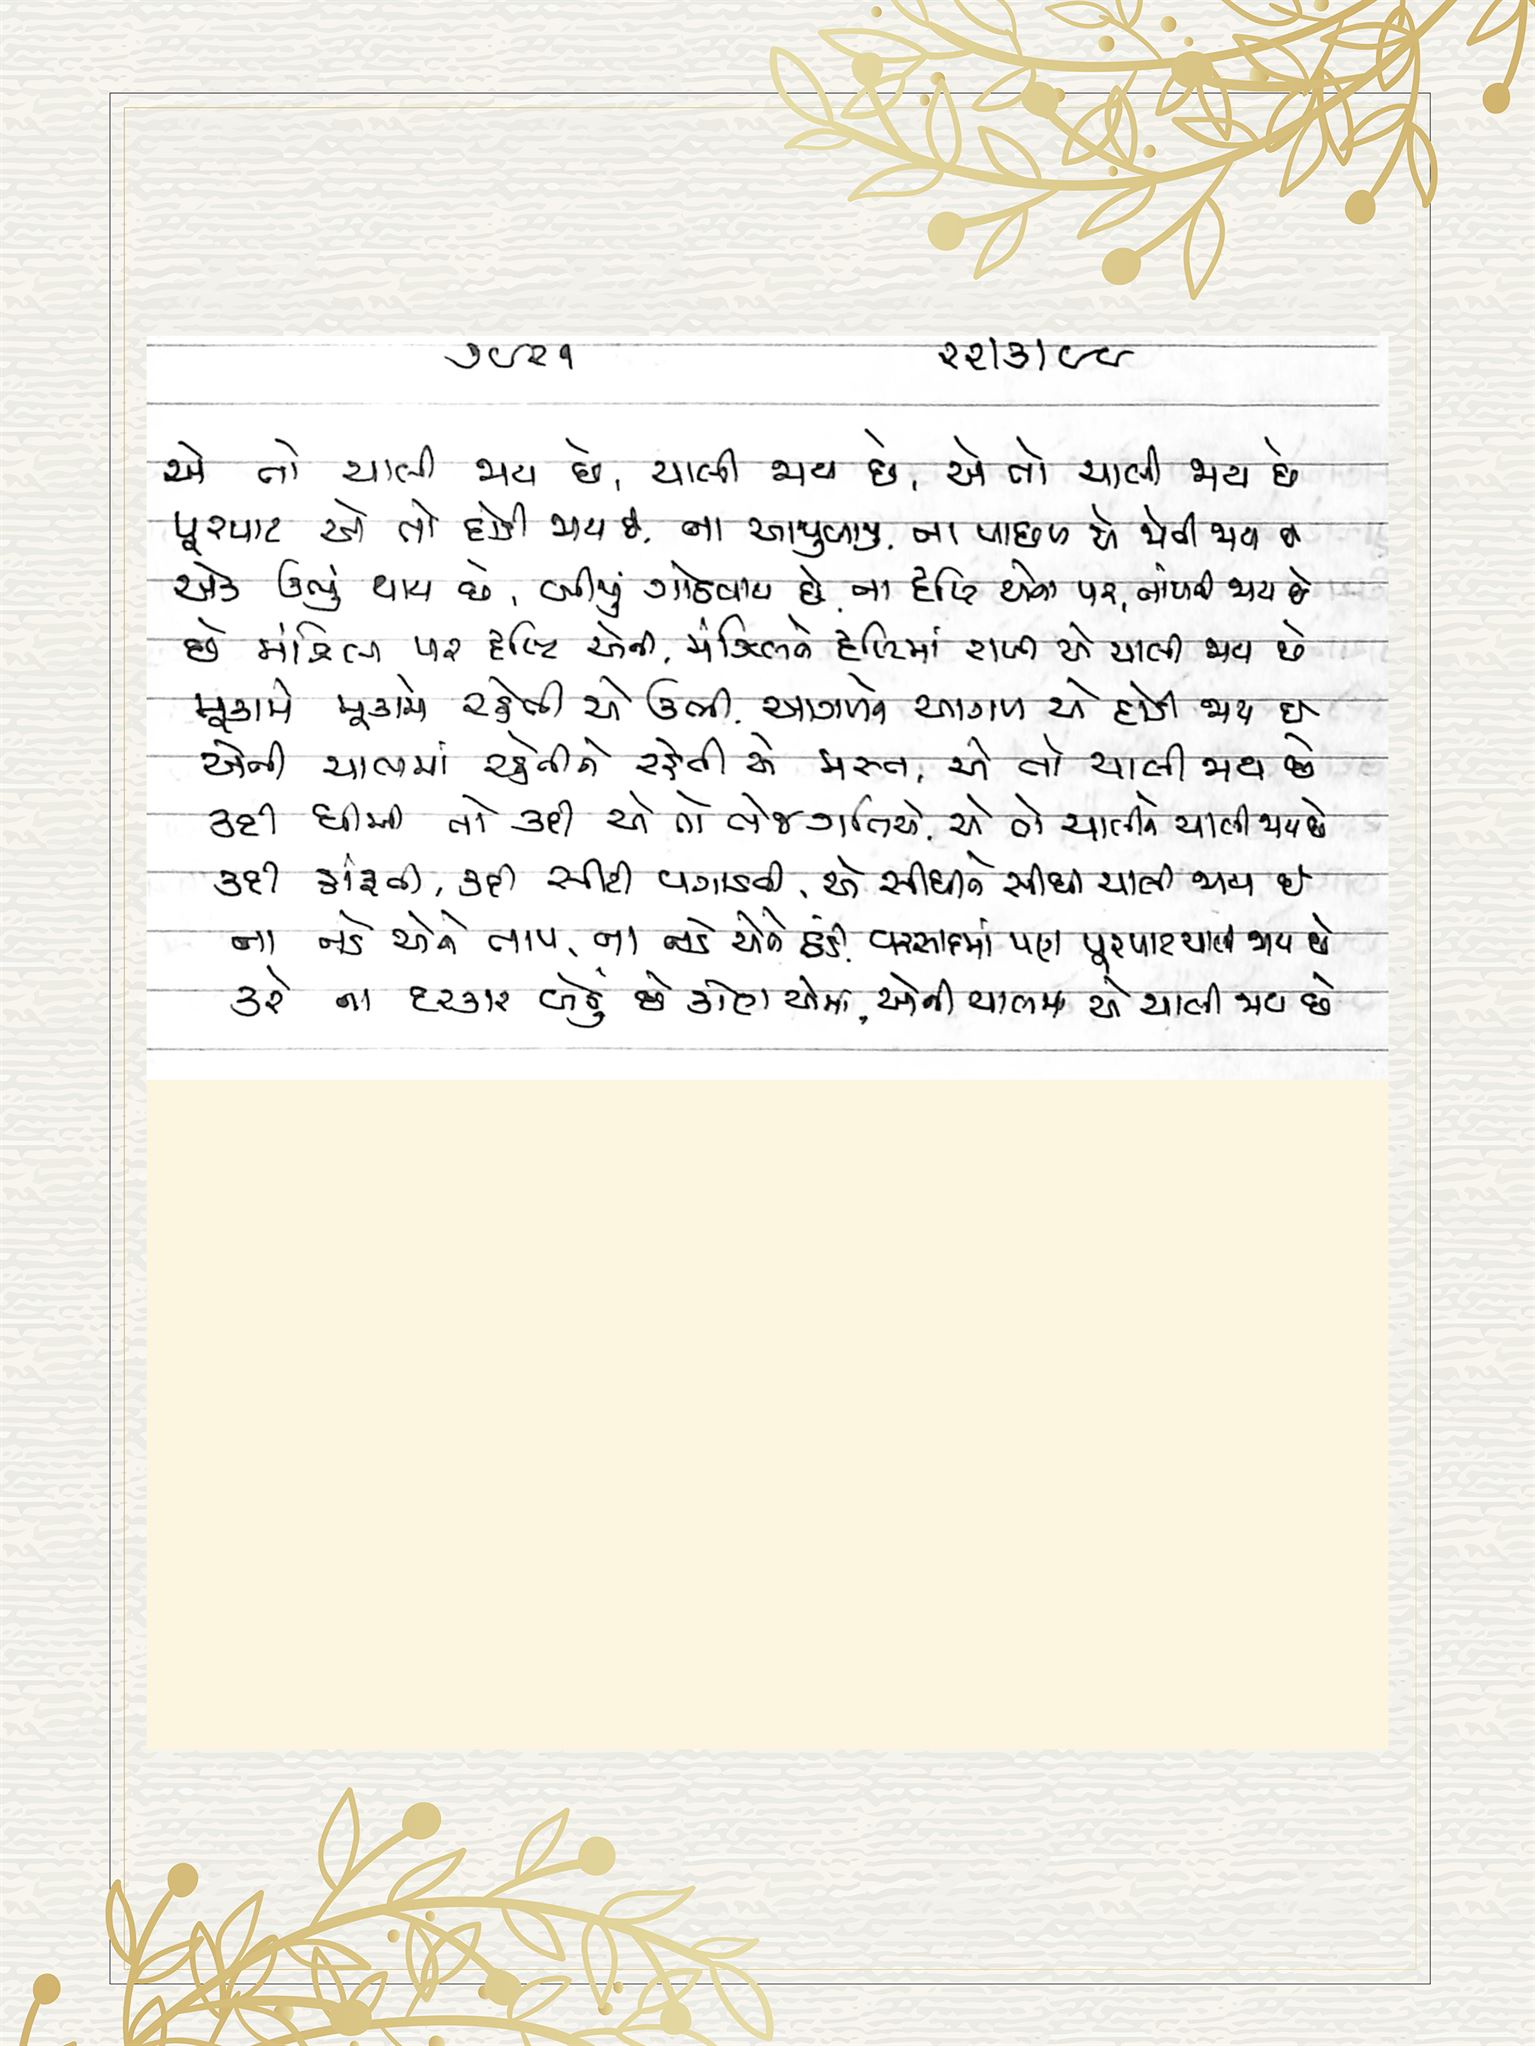 ૭૯૨૧ ૨૨/૩/૯૯
એ તો ચાલી જાય છે, ચાલી જાય છે, એ તો ચાલી જાય છે
પૂરપાટ એ તો દોડી જાય છે, ના આજુબાજુ, ના પાછળ એ જોતી જાય છે
એક ઊભું થાય છે, બીજું ગોઠવાય છે, ના દૃષ્ટિ એના પર, નાંખતી જાય છે
છે મંઝિલ પર દૃષ્ટિ એની, મંઝિલને દૃષ્ટિમાં રાખી એ ચાલી જાય છે
મૂકામે મૂકામે રહેતી એ ઊભી, આગળને આગળ એ દોડી જાય છે
એની ચાલમાં રહેતીને રહેતી એ મસ્ત, એ તો ચાલી જાય છે
કદી ધીમી તો કદી એ તો તેજ ગતિએ, એ તો ચાલીને ચાલી જાય છે
કદી હાંફતી, કદી સીટી વગાડતી, એ સીધીને સીધી ચાલી જાય છે
ના નડે એને તાપ, ના નડે એને ઠંડી, વરસાદમાં પણ પૂરપાટ ચાલી જાય છે
કરે ના દરકાર બેઠું છે કોણ એમાં, એની ચાલમાં એ ચાલી જાય છે